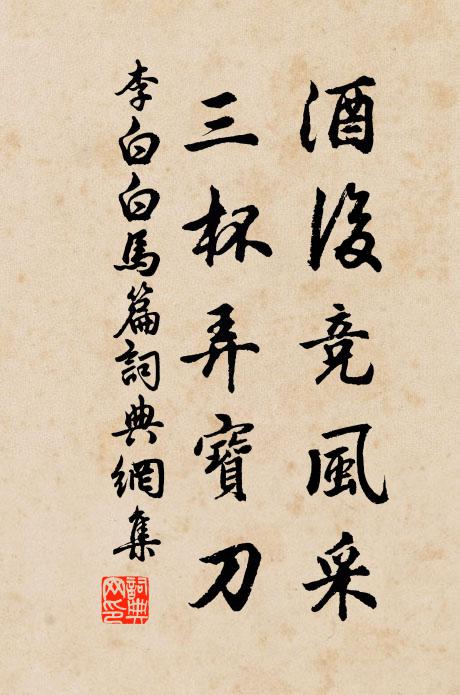 酒後競風采
三杯弄寶刀
李白白馬篇詞典網集
詞典網印